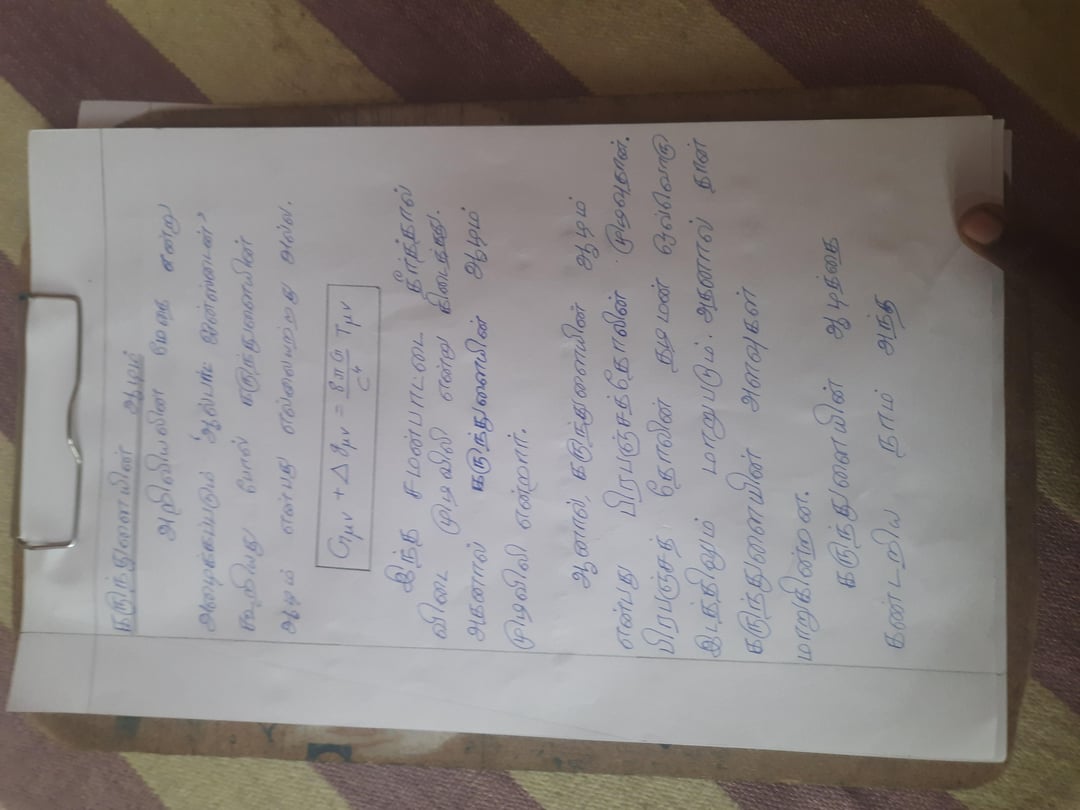 கருந்துளையின் ஆழம்
அறிவியலின் மேதை என்று
அழைக்கப்படும் "ஆல்பர்ட் ஐன்ஸ்டைன்"
கூறியது போல் கருந்துளையின்
ஆழம் என்பது எல்லையற்றது அல்ல.
Gμν + Δ gμν = 8πG/c⁴ Tμν
இந்த சமன்பாட்டை தீர்த்தால்
விடை முடிவிலி என்று கிடைத்தது.
அதனால் கருந்துளையின் ஆழம்
முடிவிலி என்றார்.
ஆனால், கருந்துளையின் ஆழம்
என்பது பிரபஞ்சத்தோலின் முடிவுதான்.
பிரபஞ்சத் தோலின் தடிமன் ஒவ்வொரு
இடத்திலும் மாறுபடும். அதனால் தான்
கருந்துளையின் அளவுகள்
மாறுகின்றன.
கருந்துளையின் ஆழத்தை
கண்டறிய நாம் அந்த